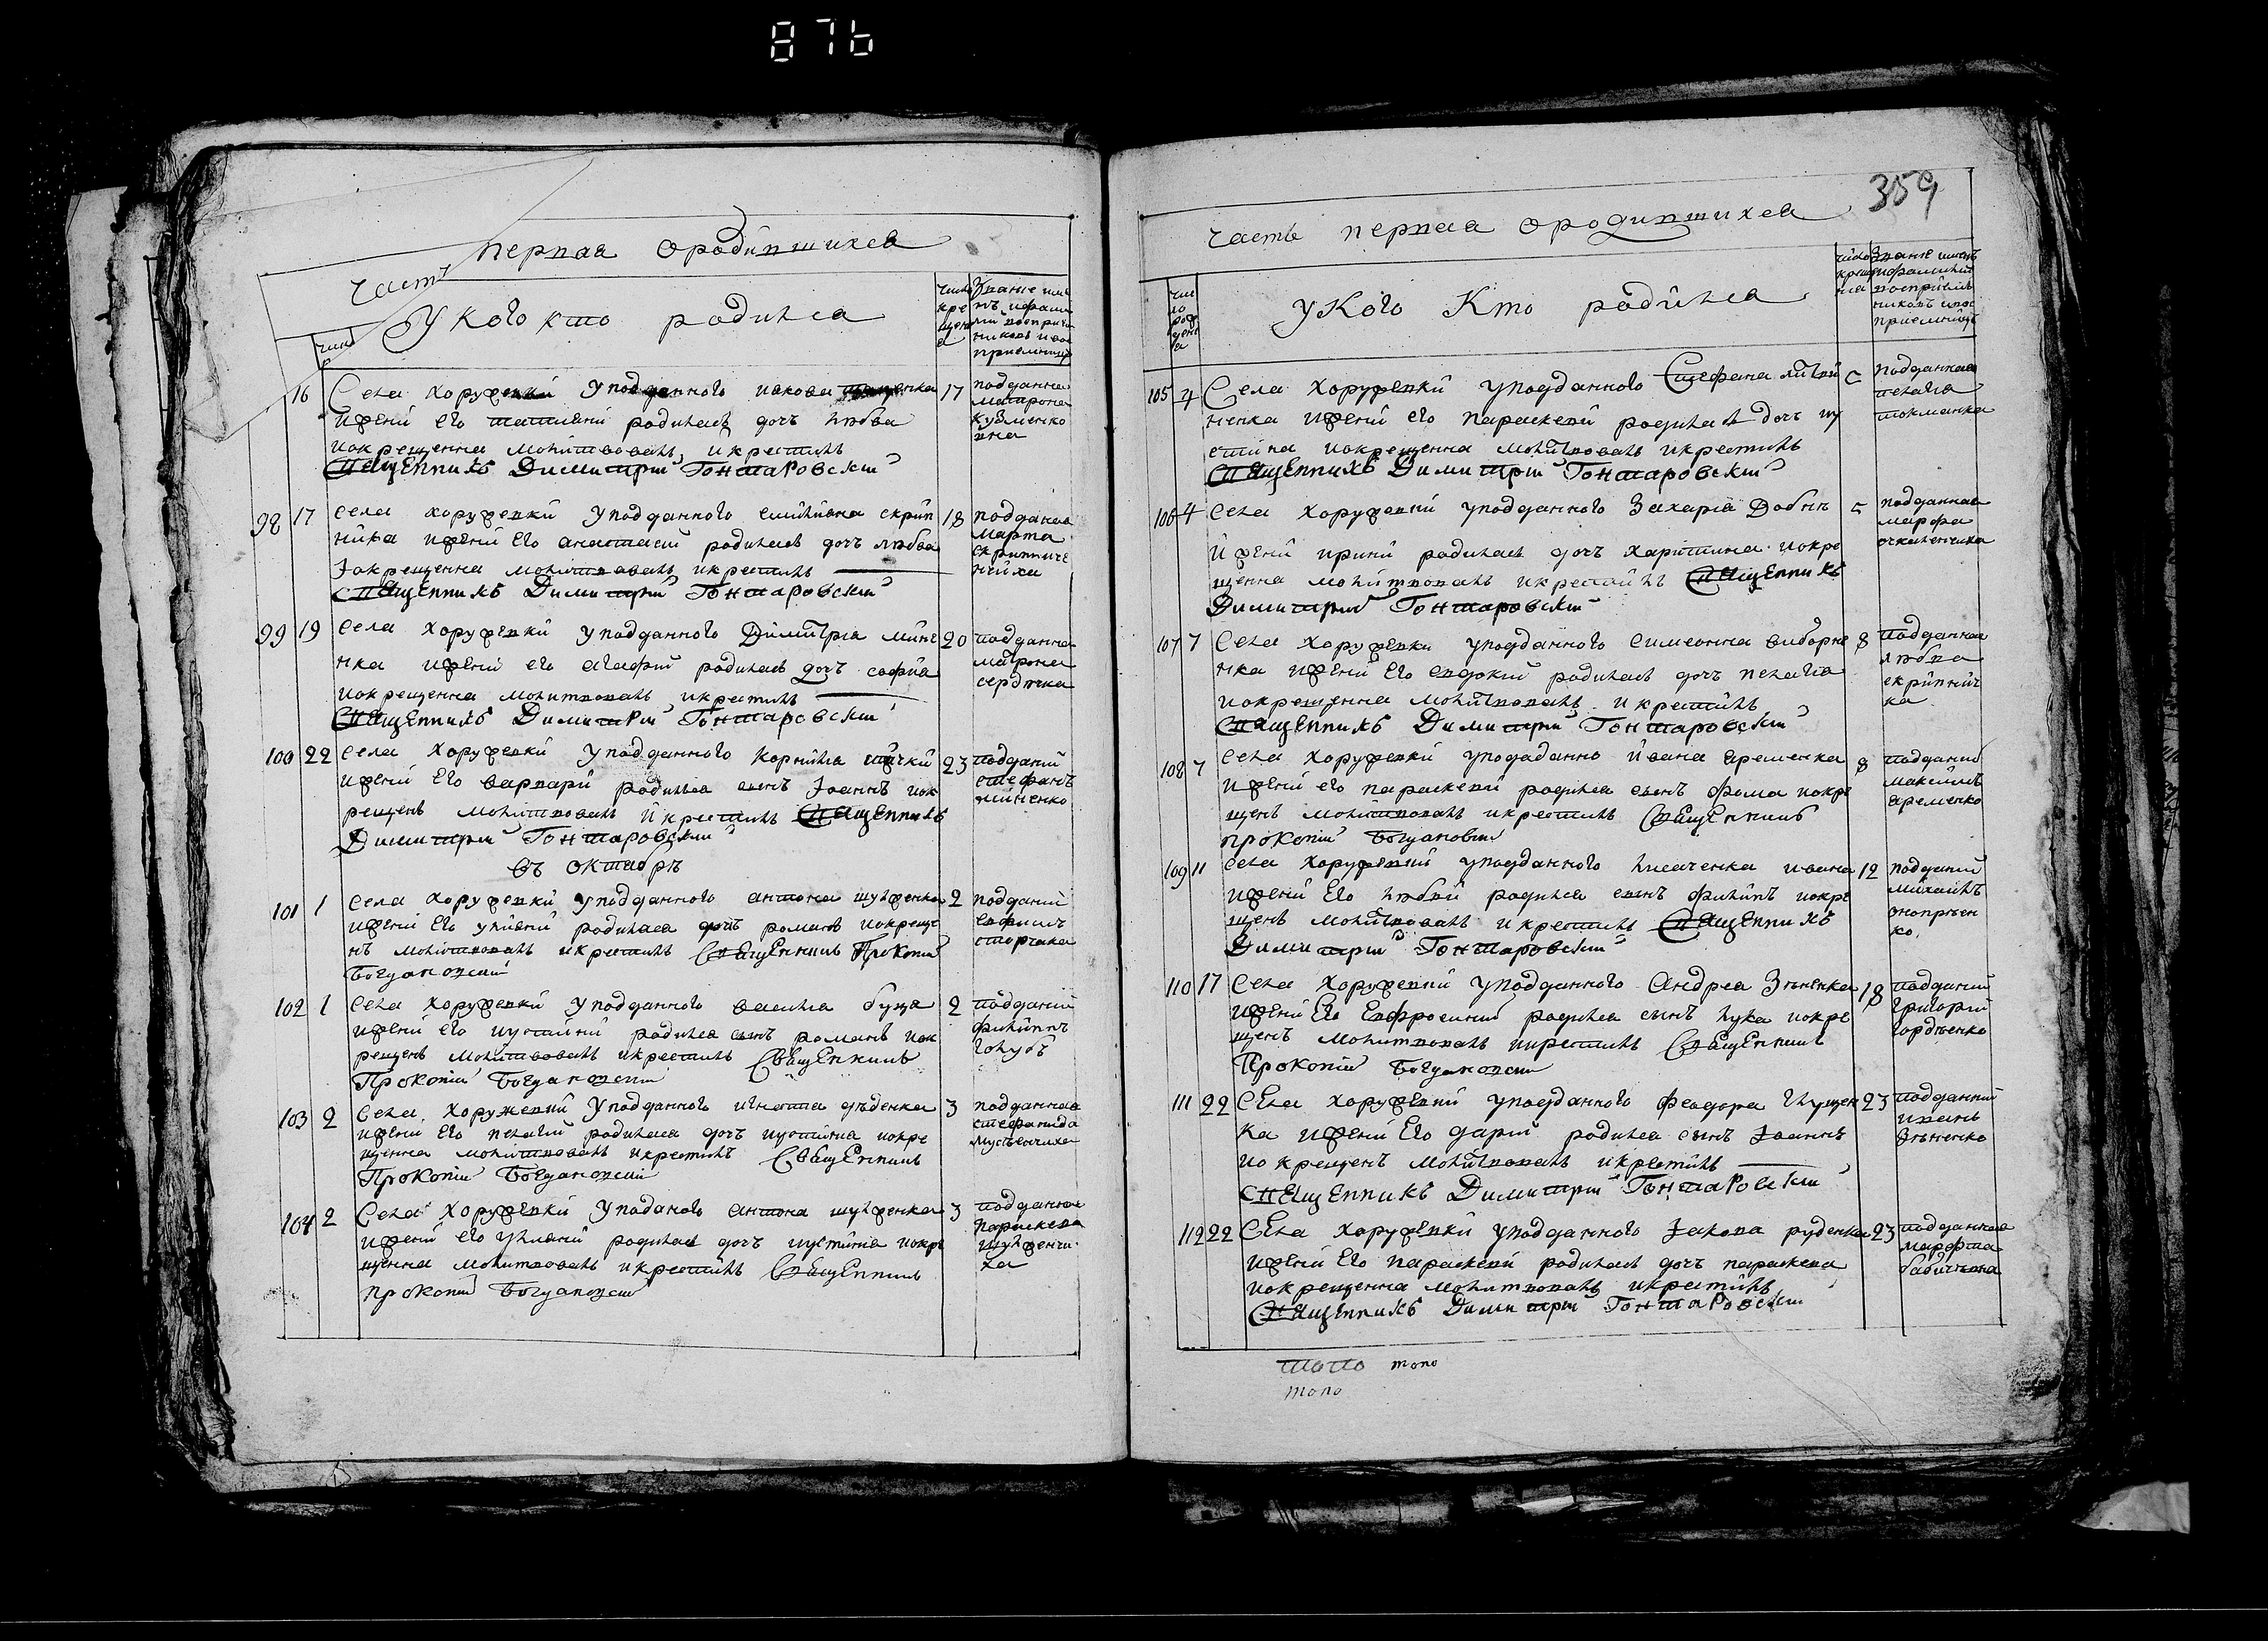 876
часть первая ородившихся
число
У кого кто родился
число крещения
Звание имянъ ифамилий восприемниковъ ивосприемницъ
16 Села Хоружевки у подданного иякова
ижени его татияни родилась дочь любва
иокрещенна молитвовалъ икрестилъ
Священникъ Димитрий Гонтаровский
17 подданна
матрона
кузменко
вна
98 17 села хоружевки у подданного скрип
ника ижени его анастасии родилась дочь любва
иокрещенна молитвовалъ икрестилъ
священникъ Димитрий Гонтаровский
18 подданая
марта
скрипниче
нчиха
99 19 села хоружевки у подданного Димитрия мине
нка ижени его агафии родилась дочь софия
иокрещенна молитвовалъ икрестилъ
Священникъ Димитрий Гонтаровский
20 подданна
матрона
сердюка
100 22 села хоружевки у подданного корнила
ижени его варвари родился сынъ Иоаннъ иок
рещенъ молитвовалъ икрестилъ Священникъ
Димитрий Гонтаровский
23 подданий
стефанъ
миненко
въ октябрѣ
101 1 села хоружевки у подданного антона шулженка
ижени его улияни родилася романъ иокреще
нъ молитвовалъ икрестилъ Священникъ Прокопий
Богдановский
2 подданий
евфимъ
сторчака
102 1 села хоружевки у подданного василия буца
ижени его иустини родился сынъ романъ иок
рещенъ молитвовалъ икрестилъ Священникъ
Прокопий Богдановский
2 подданий
филиппъ
голубъ
103 2 села хоружевки у подданного игната дѣденка
ижени его пелагии родилася дочъ иустина иокре
щенна молитвовалъ икрестилъ Священникъ
Прокопий Богдановский
3 подданная
стефанида
104 2 Села Хоружевки у поданого антона шулженка
ижени его улияни родилась дочъ иустина иокре
щенна молитвовалъ икрестилъ Священникъ
прокопий Богдановский
3 подданная
параскева
шулженчи
ха
359
часть первая ородившихся
число рожденія
у кого Кто родился
число крещения
Звание имянъ ифамилий восприемниковъ ивосприемницъ
105 4 Села Хоружевки у подданного Стефана литви
ненка ижени его параскеви родилась дочъ иу
стина иокрещенна молитвовалъ икрестилъ
Священникъ Димитрий Гонтаровский
5 подданная
пелагия
токманка
106 4 села хоружевки у подданного Захария Довбнѣ
ижени ирини родилась дочъ харитина иокре
щенна молитвовалъ икрестилъ Священникъ
Димитрий Гонтаровский
5 подданная
марфа
107 7 Села хоружевки у подданного симеонна виборне
нка ижени его евдокии родилась дочъ пелагия
иокрещенна молитвовалъ икрестилъ
Священникъ Димитрий Гонтаровский
8 подданная
любва
скрипнич
ка
108 7 села хоружевки у подаданно ивана яременка
ижени его параскеви родился сынъ фома иокре
щенъ молитвовалъ икрестилъ Священникъ
прокопий Богдановский
8 подданий
максимъ
яременко
109 11 села хоружевки у подданного лисаченка ивана
ижени его любви родился сынъ филипъ иокре
щенъ молитвовалъ икрестилъ Священникъ
Димитрий Гонтаровский
12 подданий
михаилъ
онопрѣен
ко
110 17 Села хоружевки у подданного Андрея Зѣненка
ижени его евфросинии родился сынъ лука иокре
щенъ молитвовалъ икрестилъ Священникъ
Прокопий Богдановский
18 подданий
григорий
гордѣенко
111 22 Села хоружевки у подданного феодора глущен
ка ижени его дарии родился сынъ Иоаннъ
иокрещенъ молитвовалъ икрестилъ
Священникъ Димитрий Гонтаровский
23 подданний
ивань
Зѣненко
112 22 Села хоружевки у подданного Иакова руденка
ижени его параскеви родилась дочъ параскева
иокрещенна молитвовалъ икрестилъ
Священникъ Димитрий Гонтаровский
23 подданная
марфа
бабичѣвна
того того
того